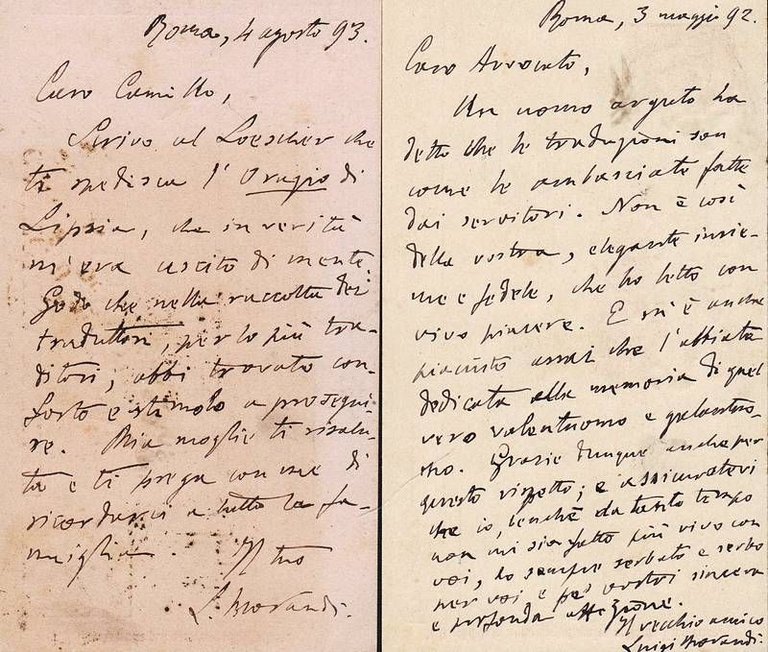 Roma, 4 agosto 93.
Caro Camillo,
Scrivo al Loescher che
ti spedisca l'Orazio di
Lipsia, che in verità
m'era uscito di mente.
Godo che nella raccolta dei
traduttori, per lo più tra-
ditori, abbi trovato con-
forto e stimolo a prosegui-
re. Mia moglie ti risalu-
ta e ti prega con me di
ricordarci a tutta la fa-
miglia. Il tuo
L. Morandi.
Roma, 3 maggio 92.
Caro Avvocato,
Un uomo arguto ha
detto che le traduzioni son
come le ambasciate fatte
dai servitori. Non è così
della vostra, elegante insie-
me e fedele, che ho letto con
vivo piacere. E m'è anche
piaciuto assai che l'abbiate
dedicata alla memoria di quel
vero valentuomo e galantuo-
mo. Grazie dunque anche per
questo rispetto; e assicuratevi
che io, benché da tanto tempo
non mi sia fatto più vivo con
voi, ho sempre serbato e serbo
per voi e pei vostri sincera
e profonda affezione.
Il vecchio amico
Luigi Morandi.